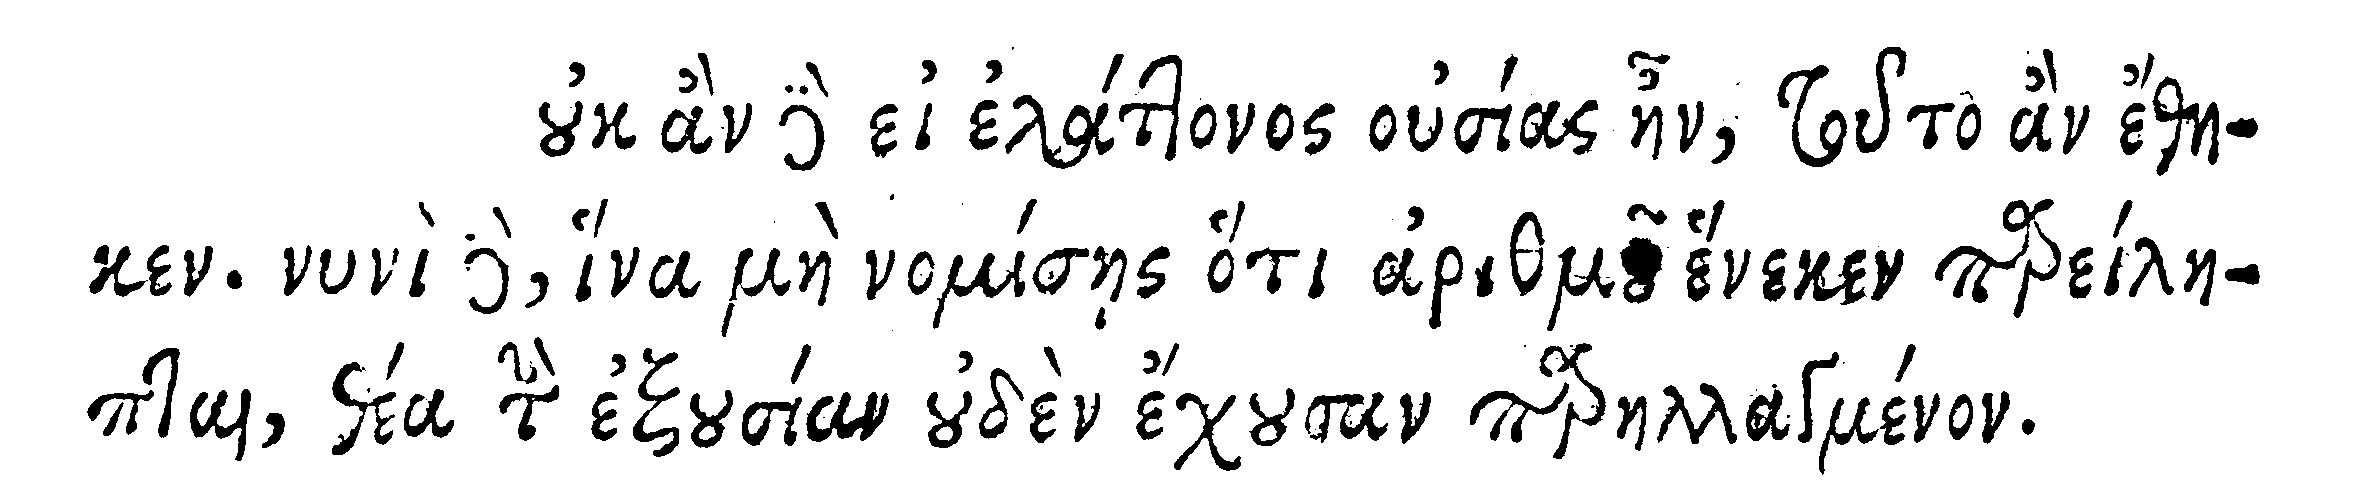 οὐκ ἂν δὲ εἰ ἐλάττονος οὐσίας ἦν, τοῦτο ἂν ἔθη-
κεν. νυνὶ δὲ, ἵνα μὴ νομίσῃς ὅτι ἀριθμοῦ ἕνεκεν παρείλη-
πται, θέα τὴν ἐξουσίαν οὐδὲν ἔχουσαν παρηλλαγμένον.